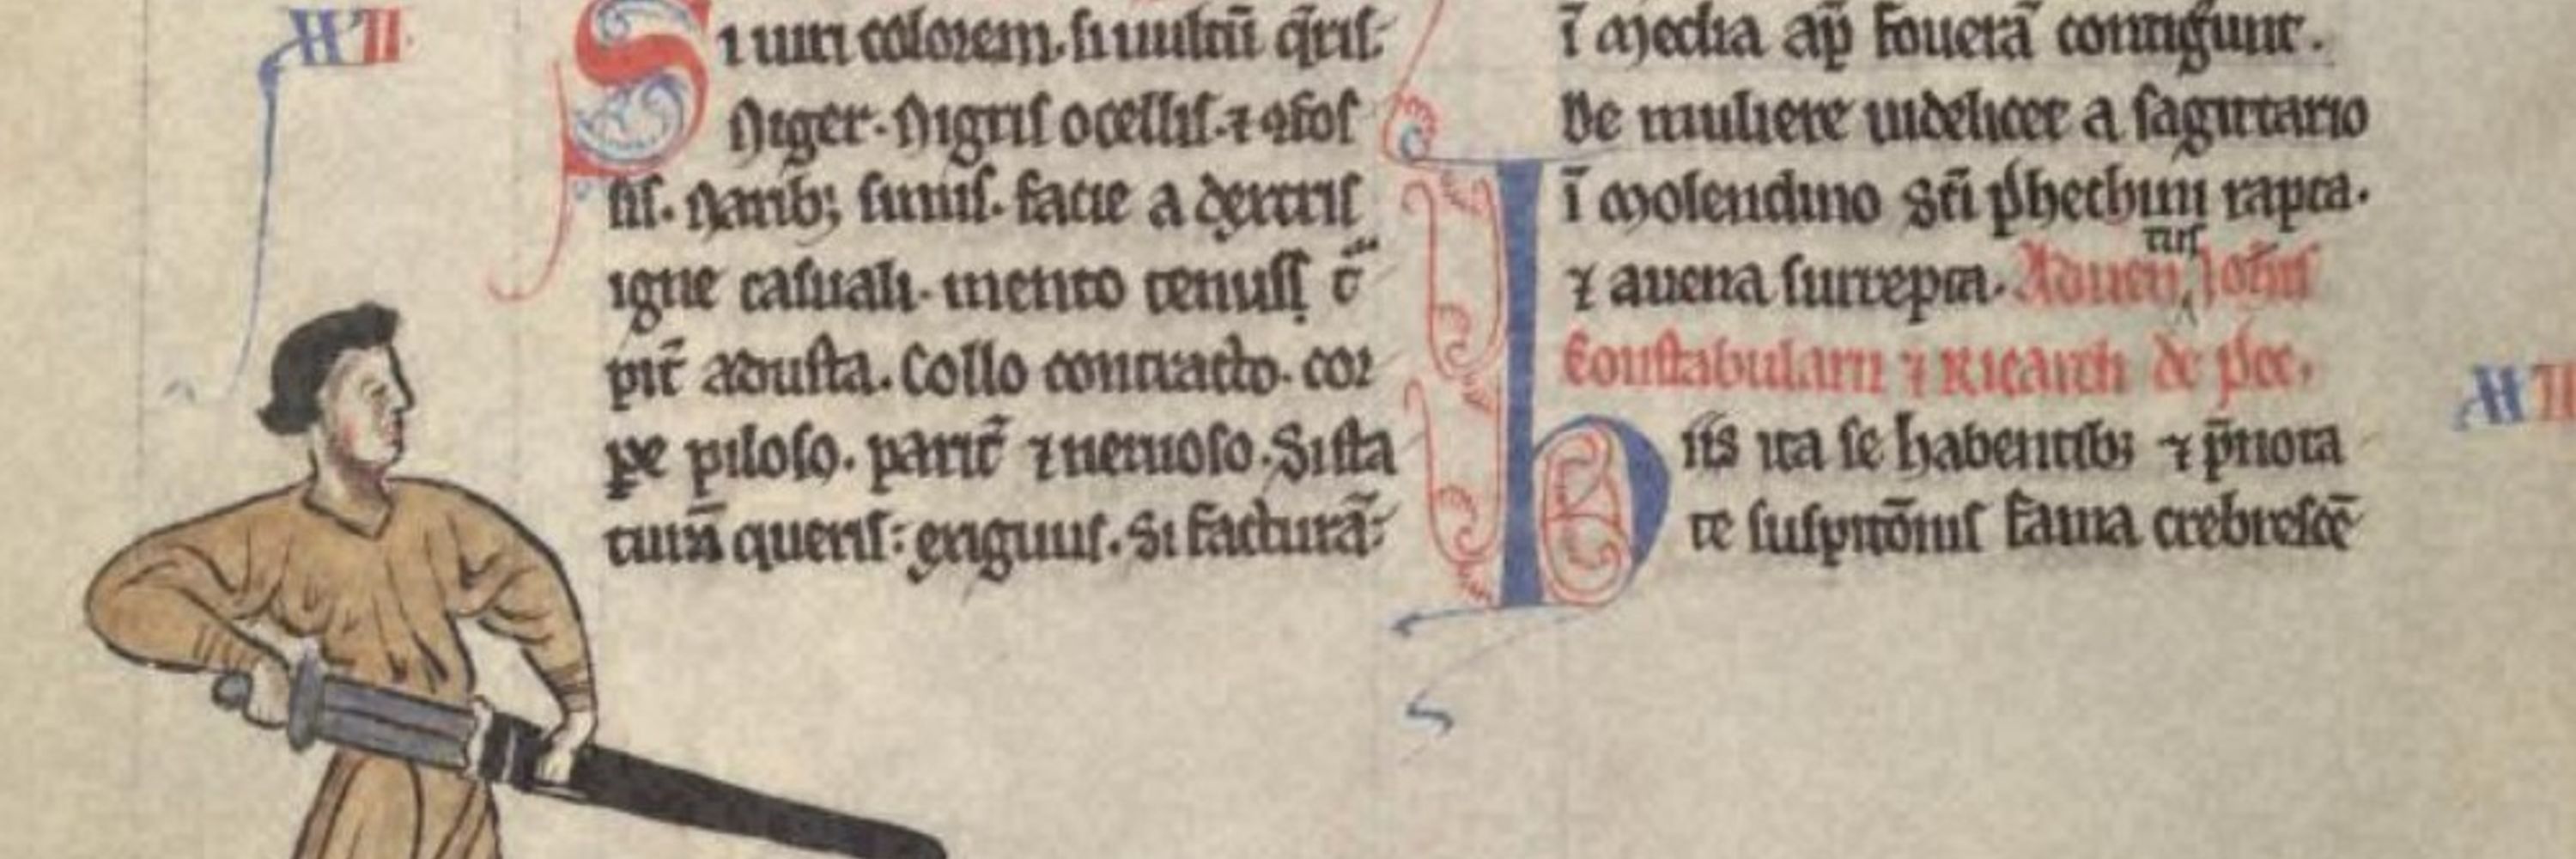 XVII.
Si uiri colorem. si uultū q̄ris:
Niger. Nigris ocellis. ⁊ ꝯfos
sis. Narib; simis. facie a dextris
igne casuali. mento tenus
pit̄ adusta. Collo contracto. cor
pe piloso. parit̄ ⁊ neruoso. Si sta
turā queris: exiguus. Si facturā:
ī Media ap̄ fouerā contigerunt.
De muliere uidelicet a sagittario
ī Molendino Sc̄i phechini rapta.
⁊ auena surrepta. Aduen tus Ioh̄is
Constabularii ⁊ Ricardi de pec.
hiis ita se habentib; ⁊ p̄uiora
te suspitōnis fama crebrescē